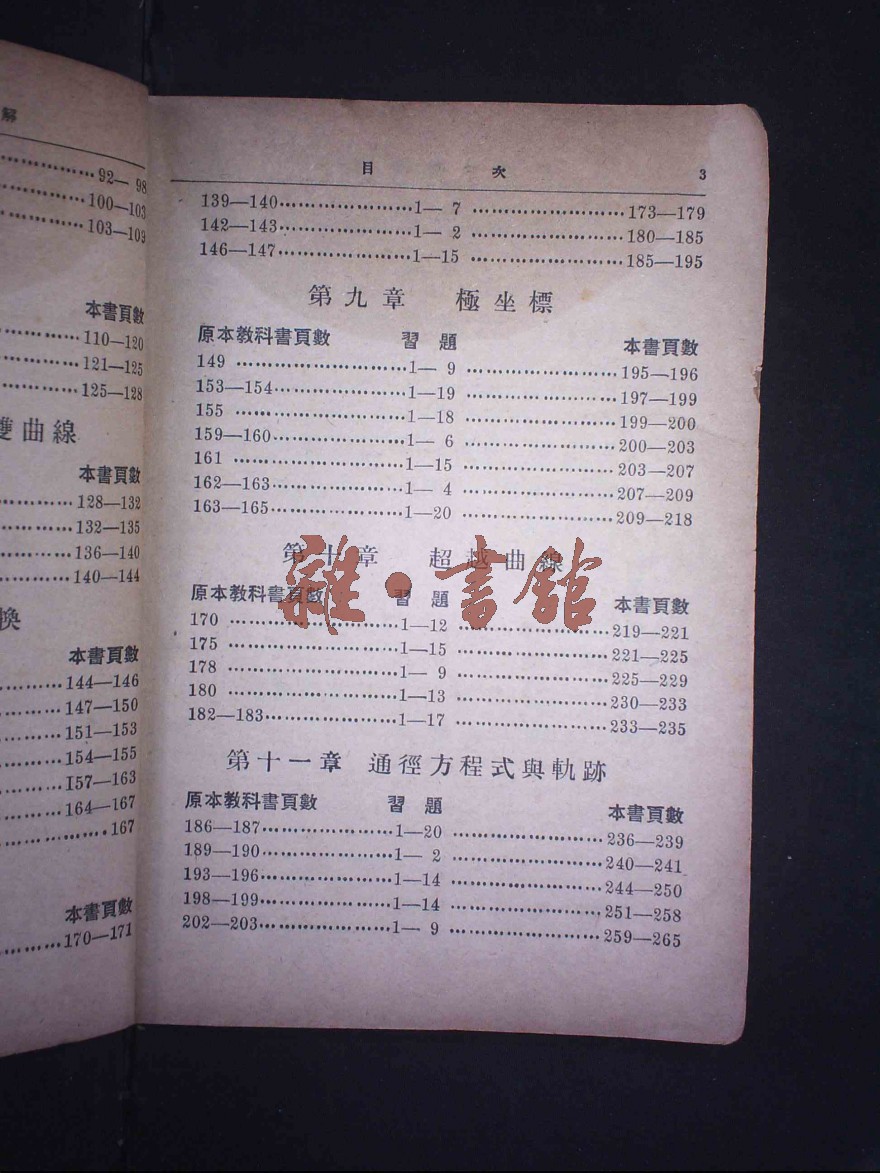 解
92—98
100—103
103—109
本書頁數
110—120
121—125
125—128
雙曲線
本書頁數
128—132
132—135
136—140
140—144
換
本書頁數
144—146
147—150
151—153
154—155
157—163
164—167
167
本書頁數
170—171
目 次 3
139—140…………………1— 7 ……………………173—179
142—143…………………1— 2 ……………………180—185
146—147…………………1—15 ……………………185—195
第九章 極坐標
原本教科書頁數 習 題 本書頁數
149 ………………………1— 9 ……………………195—196
153—154…………………1—19 ……………………197—199
155 ………………………1—18 ……………………199—200
159—160…………………1— 6 ……………………200—203
161 ………………………1—15 ……………………203—207
162—163…………………1— 4 ……………………207—209
163—165…………………1—20 ……………………209—218
第十章 超越曲線
雜·書館
原本教科書頁數 習 題 本書頁數
170 ………………………1—12 ……………………219—221
175 ………………………1—15 ……………………221—225
178 ………………………1— 9 ……………………225—229
180 ………………………1—13 ……………………230—233
182—183…………………1—17 ……………………233—235
第十一章 通徑方程式與軌跡
原本教科書頁數 習 題 本書頁數
186—187…………………1—20 ……………………236—239
189—190…………………1— 2 ……………………240—241
193—196…………………1—14 ……………………244—250
198—199…………………1—14 ……………………251—258
202—203…………………1— 9 ……………………259—265